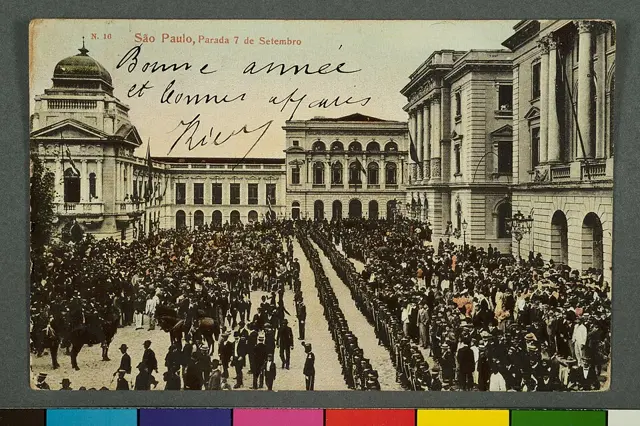 N. 16 São Paulo, Parada 7 de Setembro
Bonne année
et bonnes affaires